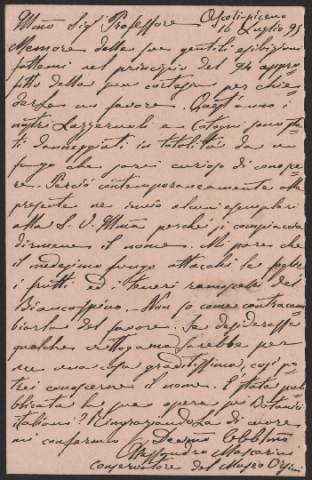 Illmo Sigr Professore Ascoli-piceno
16 Luglio 95
Memore delle sue gentili esibizioni
fattemi nel principio del 94 appro-
fitto della sua cortesia per chie-
derle un favore. Quest'anno i
nostri Lazzeruoli e Cotogni sono sta-
ti danneggiati in totalità da un
fungo che sarei curioso di conosce-
re. Perciò contemporaneamente alla
presente ne invio alcuni esemplari
alla S. V. Illma perché si compiaccia
dirmene il nome. Mi pare che
il medesimo fungo attacchi le foglie
i frutti ed i teneri ramoscelli del
Biancospino. Non so come contracam-
biarla del favore. Se desiderasse
qualche crittogama sarebbe per
me una cosa graditissima, così po-
trei conoscerne il nome. È stata pub-
blicata la sua opera pei Botanici
italiani? Ringraziandola di cuore
mi confermo Devmo Obblmo
Alessandro Mascarini
Conservatore del Museo Orsini